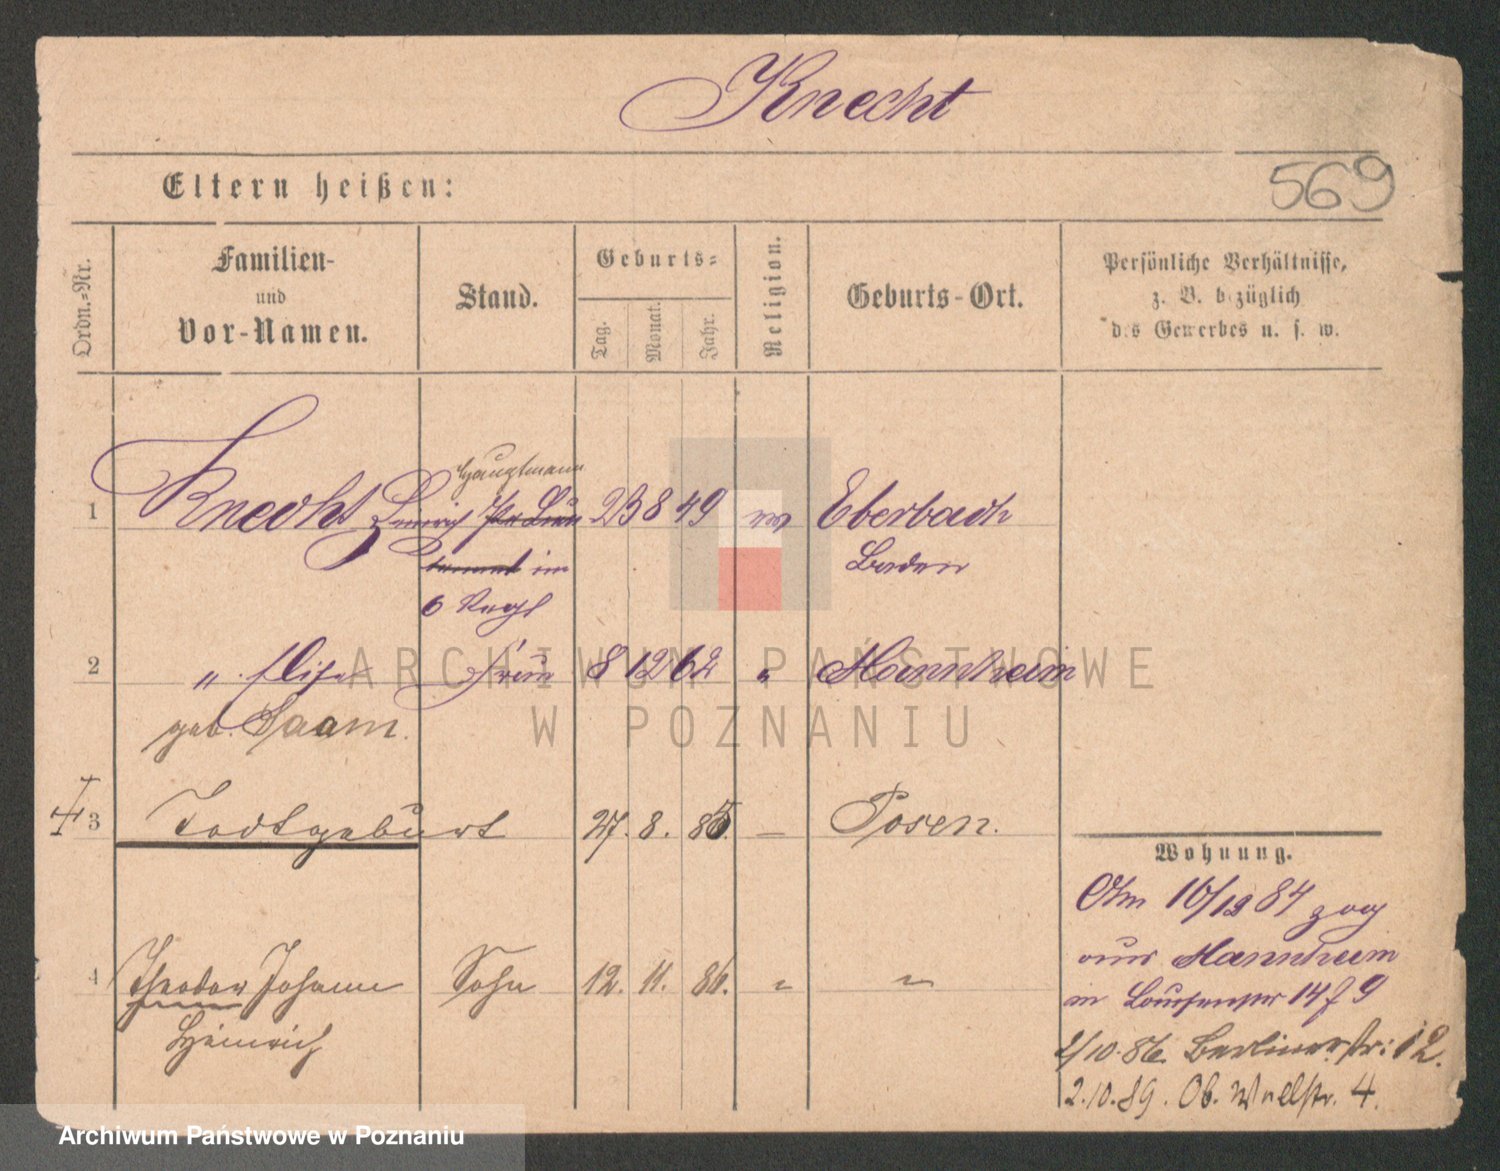 Knecht
Eltern heißen:
569
Ordn.-Nr.
Familien-
und
Vor-Namen.
Stand.
Geburts-
Tag.
Monat.
Jahr.
Religion.
Geburts-Ort.
Persönliche Verhältnisse,
z. B. bezüglich
des Gewerbes u. s. w.
Hauptmann
1 Knecht Heinrich Pr Lieu 23 8 49 Eberbach
im Baden
6
2 " Elise Frau 8 12 62 " Mannheim
geb. Saam.
3 Todtgeburt 27. 8. 85. — Posen.
Wohnung.
Am 16/12 84 zog
aus Mannheim
in 14
4 Theodor Johann Sohn 12. 11. 86. " "
Heinrich
2/10. 86. Berlinerstr: 12.
2.10.89. Ob. Wallstr. 4.
ARCHIWUM PAŃSTWOWE
W POZNANIU
Archiwum Państwowe w Poznaniu